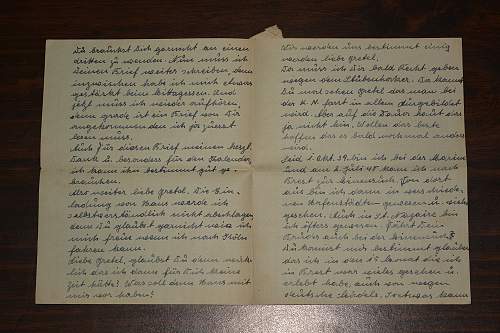 Du brauchst Dich garnicht an einen
dritten zu wenden. Nun muss ich
Deinen Brief weiter schreiben, denn
inzwischen habe ich mich etwas
gestärkt beim Mittagessen. Und
jetzt muss ich wieder aufhören,
denn grade ist ein Brief von Dir
angekommen den ich ja zuerst
lesen muss.
Auch für diesen Brief meinen herzl.
Dank u. besonders für den Kalender,
ich kann ihn bestimmt gut ge-
brauchen.
Also weiter liebe Gretel. Die Ein-
ladung von Hans werde ich
selbstverständlich nicht abschlagen,
denn Du glaubst garnicht wie ich
mich freue wenn ich nach Köln
fahren kann.
Liebe Gretel, glaubst Du denn wirk-
lich das ich dann für Dich keine
Zeit hätte? Was soll denn Hans mit
mir vor haben?
Wir werden uns bestimmt einig
werden liebe Gretel.
Da muss ich Dir bald Recht geben
wegen dem Stubenhocker. Da kannst
Du mal sehen Gretel das man bei
der K.M. fast in allem ausgebildet
wird. Aber auf die Dauer haut das
ja nicht hin. Wollen das beste
hoffen das es bald nochmal anders
wird.
Seid 1. Okt. 39 bin ich bei der Marine
und am 2 Juli 40 kam ich nach
Brest zur Einheit. Von dort
aus bin ich dann in verschiede-
nen Hafenstädten gewesen u. viel
gesehen. Auch in St. Nazaire bin
ich öfters gewesen. Fährt Dein
Bruder auch bei der
Du kannst mir bestimmt glauben
das ich in den 15 Monat die ich
in Brest war vieles gesehen u.
erlebt habe, auch von wegen
deutsche Mädels. Soetwas kann